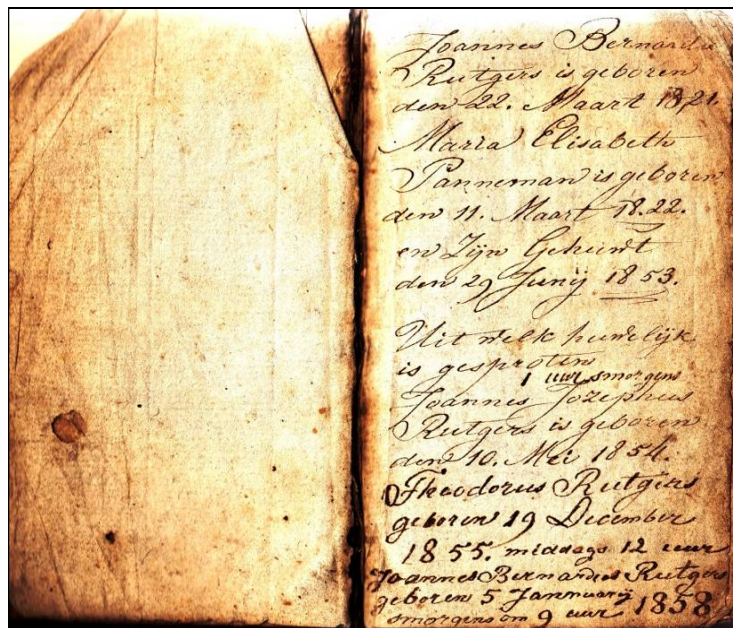 Joannes Bernardus
Rutgers is geboren
den 22. Maart 1821.
Maria Elisabeth
Panneman is geboren
den 11. Maart 18.22.
en Zijn Gehuwt
den 29 Junij 1853.
Uit welk huwelijk
is gesproten
1 uur smorgens
Joannes Jozephus
Rutgers is geboren
den 10. Mei 1854.
Theodorus Rutgers
geboren 19 December
1855. middags 12 uur
Joannes Bernardus Rutgers
geboren 5 Jannuarij
smorgens om 9 uur 1858